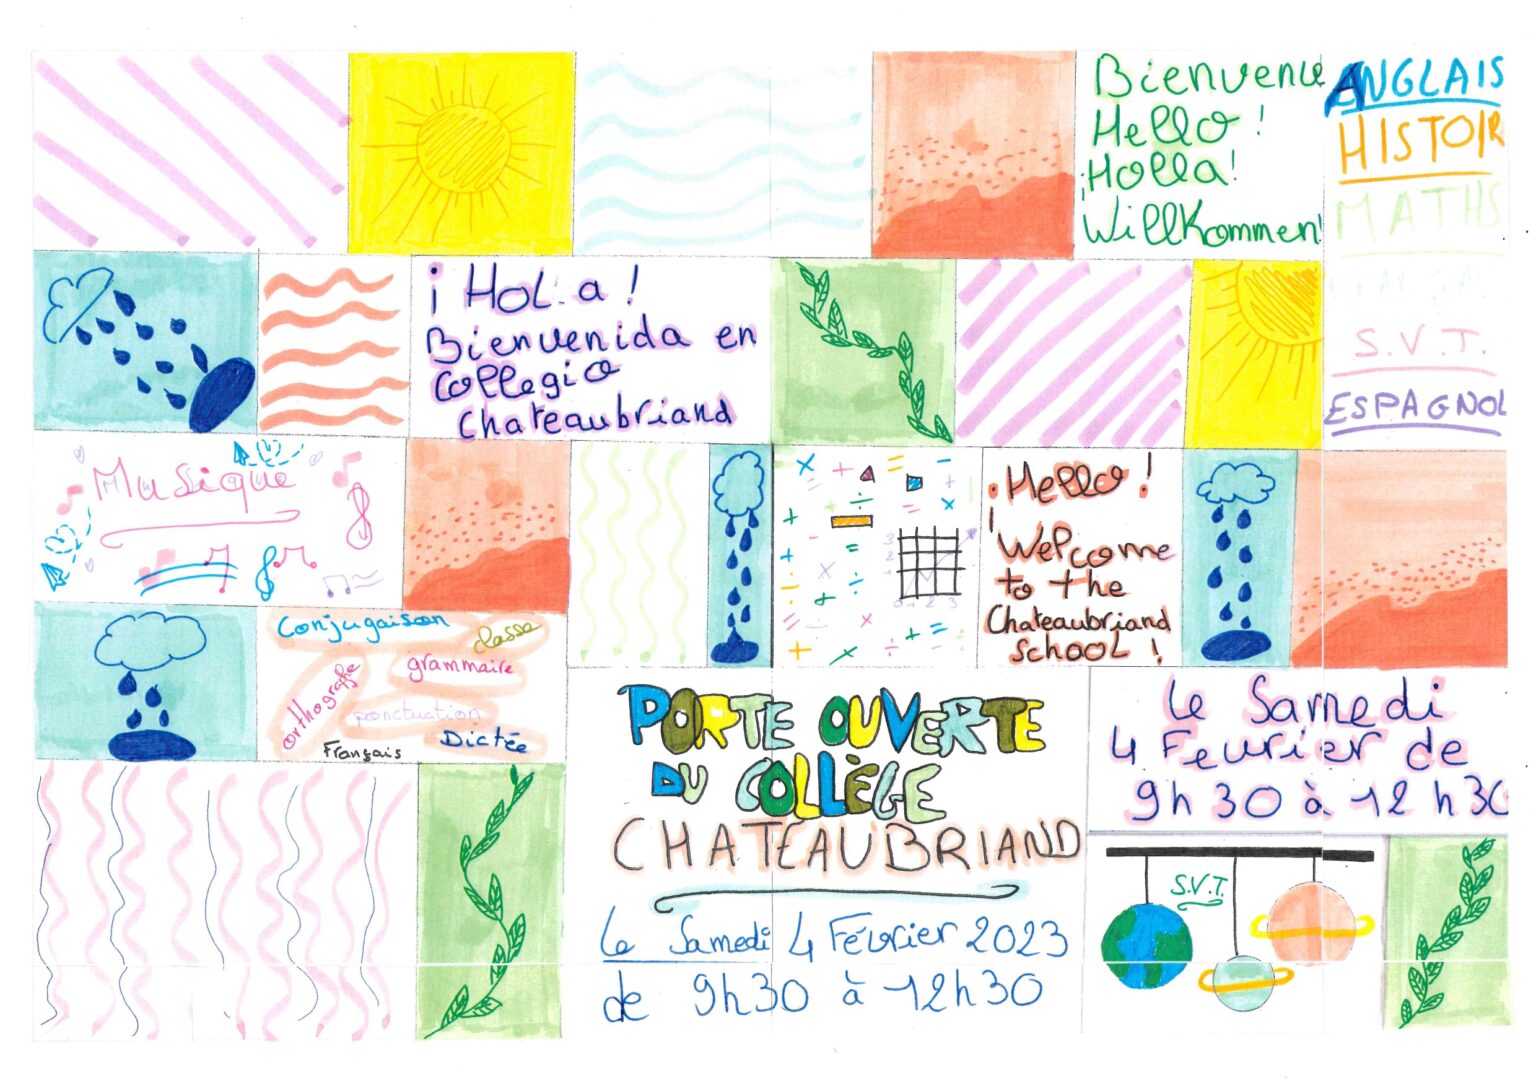 Bienvenue
Hello !
¡Holla!
Willkommen!
ANGLAIS
HISTOIR
MATHS
S.V.T.
ESPAGNOL
¡ Hola !
Bienvenida en
Collegio
Chateaubriand
Musique
¡Hello !
Welcome
to the
Chateaubriand
School !
3
2
1
0 1 2 3
Conjugaison
classe
orthographe
grammaire
ponctuation
Français
Dictée
PORTE OUVERTE
DU COLLÈGE
CHATEAUBRIAND
Le Samedi 4 Février 2023
de 9h30 à 12h30
Le Samedi
4 Fevrier de
9h30 à 12h30
S.V.T.